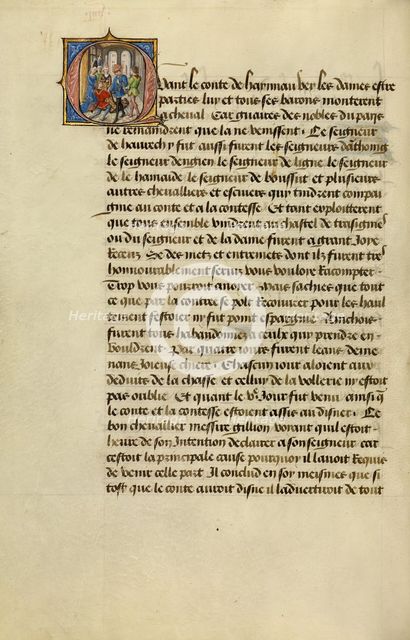 Quant le conte de haynnau vey les dames estre
parties luy et tous ses barons monterent
a cheval Car guaires des nobles du pays
ne remaindrent que la ne venissent · Ce seigneur
de haurech y fut aussi furent les seigneurs danthoing
le seigneur denghien le seigneur de ligne le seigneur
de la hamaide le seigneur de boussut et plusieurs
autres chevalliers et escuiers quy tindrent compai
gnie au conte et a la contesse Et tant exploitterent
que tous ensemble vindrent au chastel de trasigmes
ou du seigneur et de la dame furent a grant Joye
Receuz Se des metz et entremetz dont ilz furent tres
honnourablement servis vous vouloie Racompter
Trop vous pourroit anoyer · Mais sachies que tout
ce que par la contree se polt Recouvrer pour les haul
tement festoier ny fut point espargnie Ainchois
furent tous habandonnez a ceulx quy prendre en
vouldrent Par quatre jours furent leans deme
nans Joieuse chiere Chascun jour aloient aux
deduits de la chasse et celluy de la vollerie ny estoit
pas oublie Et quant le Ve Jour fut venu ainsi q
le conte et la contesse estoient assis au disner · Ce
bon chevallier messire gillion voyant quil estoit
heure de son Intention declairer a son seigneur car
cestoit la principale cause pourquoy il lavoit Requis
de venir celle part Il conclud en soy meismes que si
tost que le conte auroit disne il ladvertiroit de tout
Heritage